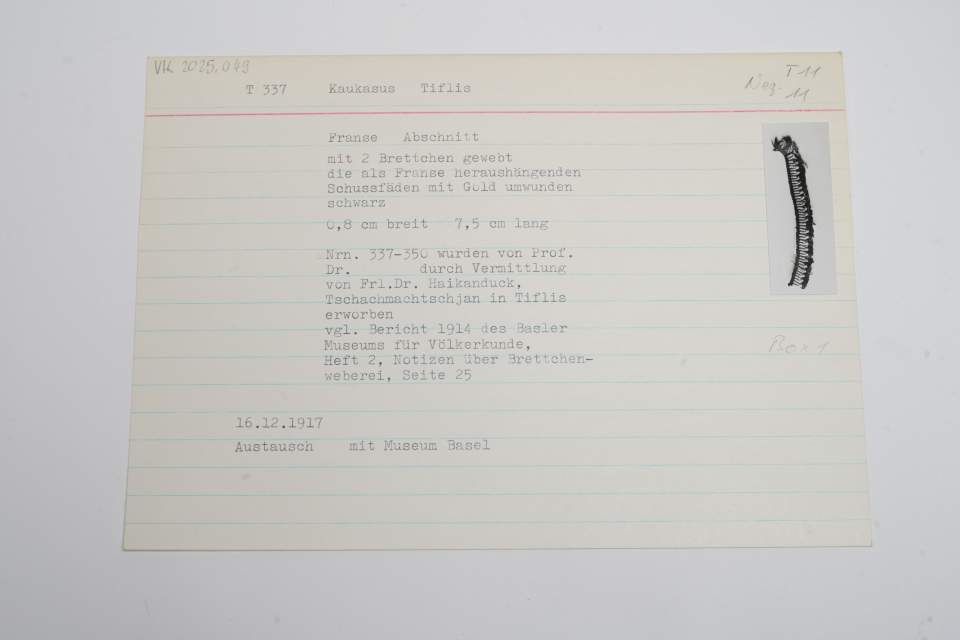 VK 2025.049
T 337 Kaukasus Tiflis
Neg. T 11
11
Franse Abschnitt
mit 2 Brettchen gewebt
die als Franse heraushängenden
Schussfäden mit Gold umwunden
schwarz
0,8 cm breit 7,5 cm lang
Nrn. 337-350 wurden von Prof.
Dr. durch Vermittlung
von Frl.Dr. Haikanduck,
Tschachmachtschjan in Tiflis
erworben
vgl. Bericht 1914 des Basler
Museums für Völkerkunde,
Heft 2, Notizen über Brettchen-
weberei, Seite 25
Box 1
16.12.1917
Austausch mit Museum Basel